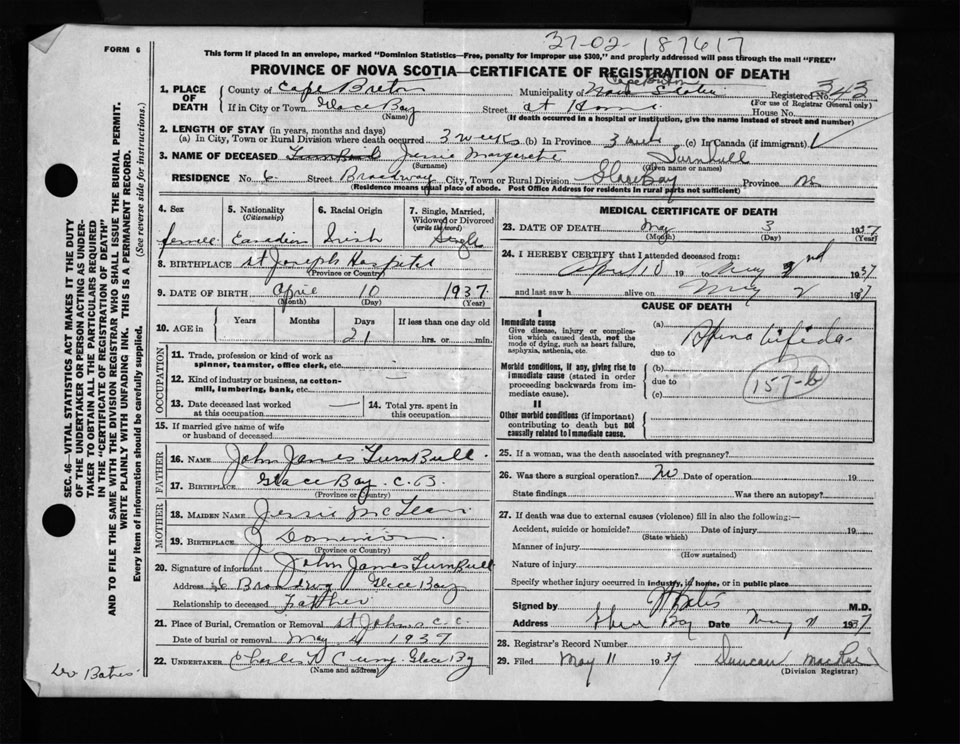 37-02-187617
FORM 6
This form if placed in an envelope, marked "Dominion Statistics—Free, penalty for improper use $300," and properly addressed will pass through the mail "FREE"
PROVINCE OF NOVA SCOTIA—CERTIFICATE OF REGISTRATION OF DEATH
1. PLACE OF DEATH
County of Cape Breton Municipality of Cape Breton Nova Scotia Registered No. 343
(For use of Registrar General only)
If in City or Town Glace Bay Street at Home House No.
(Name) (If death occurred in a hospital or institution, give the name instead of street and number)
2. LENGTH OF STAY (in years, months and days)
(a) In City, Town or Rural Division where death occurred 3 weeks (b) In Province 3 (c) In Canada (if immigrant)
3. NAME OF DECEASED Turnbull Jessie Margarete Turnbull
(Surname) (Given name or names)
RESIDENCE No. 6 Street Broadway City, Town or Rural Division Glace Bay Province NS
(Residence means usual place of abode. Post Office Address for residents in rural parts not sufficient)
4. Sex 5. Nationality (Citizenship) 6. Racial Origin 7. Single, Married, Widowed or Divorced (write the word)
Canadian Irish Single
8. BIRTHPLACE St Josephs Hospital
(Province or Country)
9. DATE OF BIRTH April 10 1937
(Month) (Day) (Year)
10. AGE in Years Months Days If less than one day old
21 hrs. or min.
OCCUPATION
11. Trade, profession or kind of work as spinner, teamster, office clerk, etc. —
12. Kind of industry or business, as cotton-mill, lumbering, bank, etc. —
13. Date deceased last worked at this occupation — 14. Total yrs. spent in this occupation
15. If married give name of wife or husband of deceased
FATHER
16. NAME John James Turnbull
17. BIRTHPLACE Glace Bay C. B.
(Province or Country)
MOTHER
18. MAIDEN NAME Jessie McLean
19. BIRTHPLACE Dominion
(Province or Country)
20. Signature of informant John James Turnbull
Address 6 Broadway Glace Bay
Relationship to deceased Father
21. Place of Burial, Cremation or Removal St Johns C. C.
Date of burial or removal May 4 1937
22. UNDERTAKER Charles Glace Bay
(Name and address)
MEDICAL CERTIFICATE OF DEATH
23. DATE OF DEATH May 3 1937
(Month) (Day) (Year)
24. I HEREBY CERTIFY that I attended deceased from:—
April 10 19 to May 2nd 1937
and last saw h alive on May 2 1937
CAUSE OF DEATH
I
Immediate cause
Give disease, injury or complication which caused death, not the mode of dying, such as heart failure, asphyxia, asthenia, etc.
(a) Spina bifida
due to
Morbid conditions, if any, giving rise to immediate cause (stated in order proceeding backwards from immediate cause).
(b)
due to 157-b
(c)
II
Other morbid conditions (if important) contributing to death but not causally related to immediate cause.
25. If a woman, was the death associated with pregnancy?
26. Was there a surgical operation? No Date of operation 19
State findings Was there an autopsy?
27. If death was due to external causes (violence) fill in also the following:—
Accident, suicide or homicide? Date of injury 19
(State which)
Manner of injury
(How sustained)
Nature of injury
Specify whether injury occurred in industry, in home, or in public place
Signed by Bates M.D.
Address Glace Bay Date May 1937
28. Registrar's Record Number
29. Filed May 11 1937 Duncan
(Division Registrar)
SEC. 46—VITAL STATISTICS ACT MAKES IT THE DUTY
OF THE UNDERTAKER OR PERSON ACTING AS UNDERTAKER TO OBTAIN ALL THE PARTICULARS REQUIRED
IN THE "CERTIFICATE OF REGISTRATION OF DEATH"
AND TO FILE THE SAME WITH THE DIVISION REGISTRAR WHO SHALL ISSUE THE BURIAL PERMIT.
WRITE PLAINLY WITH UNFADING INK. THIS IS A PERMANENT RECORD.
Every item of information should be carefully supplied. (See reverse side for instructions.)
Bates